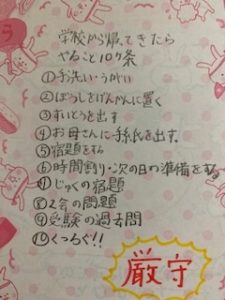 学校から帰ってきたら
やること10ヶ条
①手洗い・うがい
②ぼうしをげんかんに置く
③すいとうを出す
④お母さんに手紙を出す。
⑤宿題をする
⑥時間割り・次の日の準備をする
⑦じゅくの宿題
⑧の問題
⑨受験の過去問
⑩くつろぐ!!
厳守